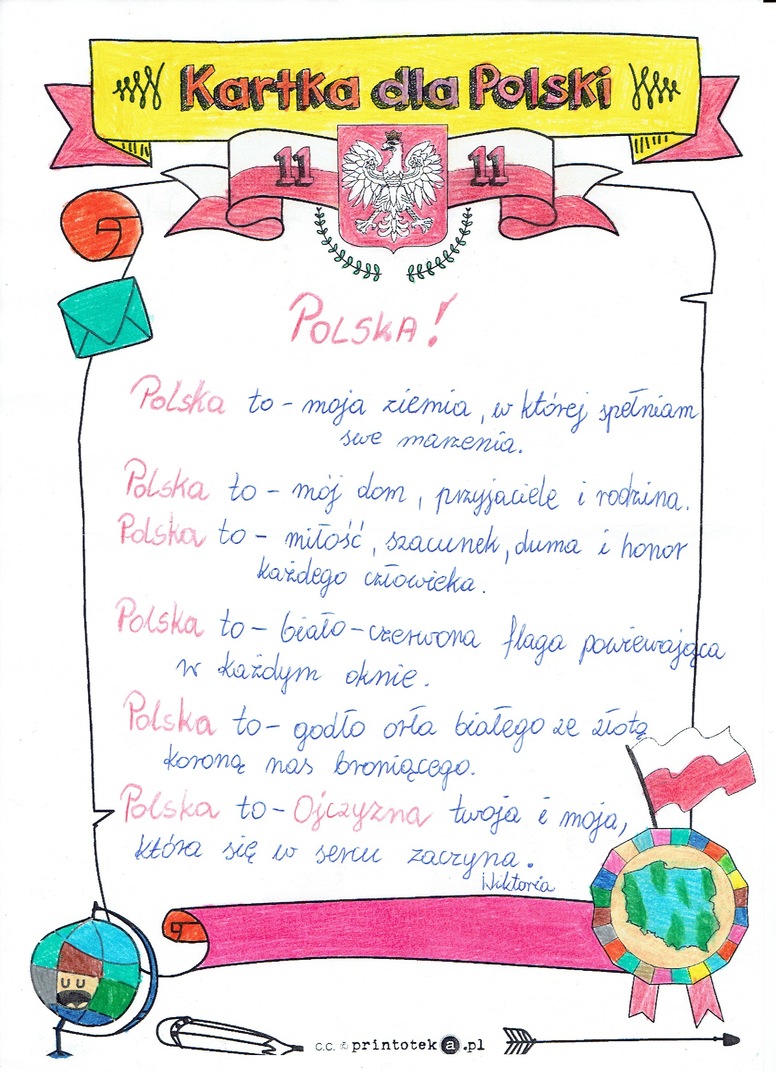 Kartka dla Polski
11 11
POLSKA!
Polska to - moja ziemia, w której spełniam
swe marzenia.
Polska to - mój dom, przyjaciele i rodzina.
Polska to - miłość, szacunek, duma i honor
każdego człowieka.
Polska to - biało-czerwona flaga powiewająca
w każdym oknie.
Polska to - godło orła białego ze złotą
koroną nas broniącego.
Polska to - Ojczyzna twoja i moja,
która się w sercu zaczyna.
Wiktoria
c.c. printoteka.pl